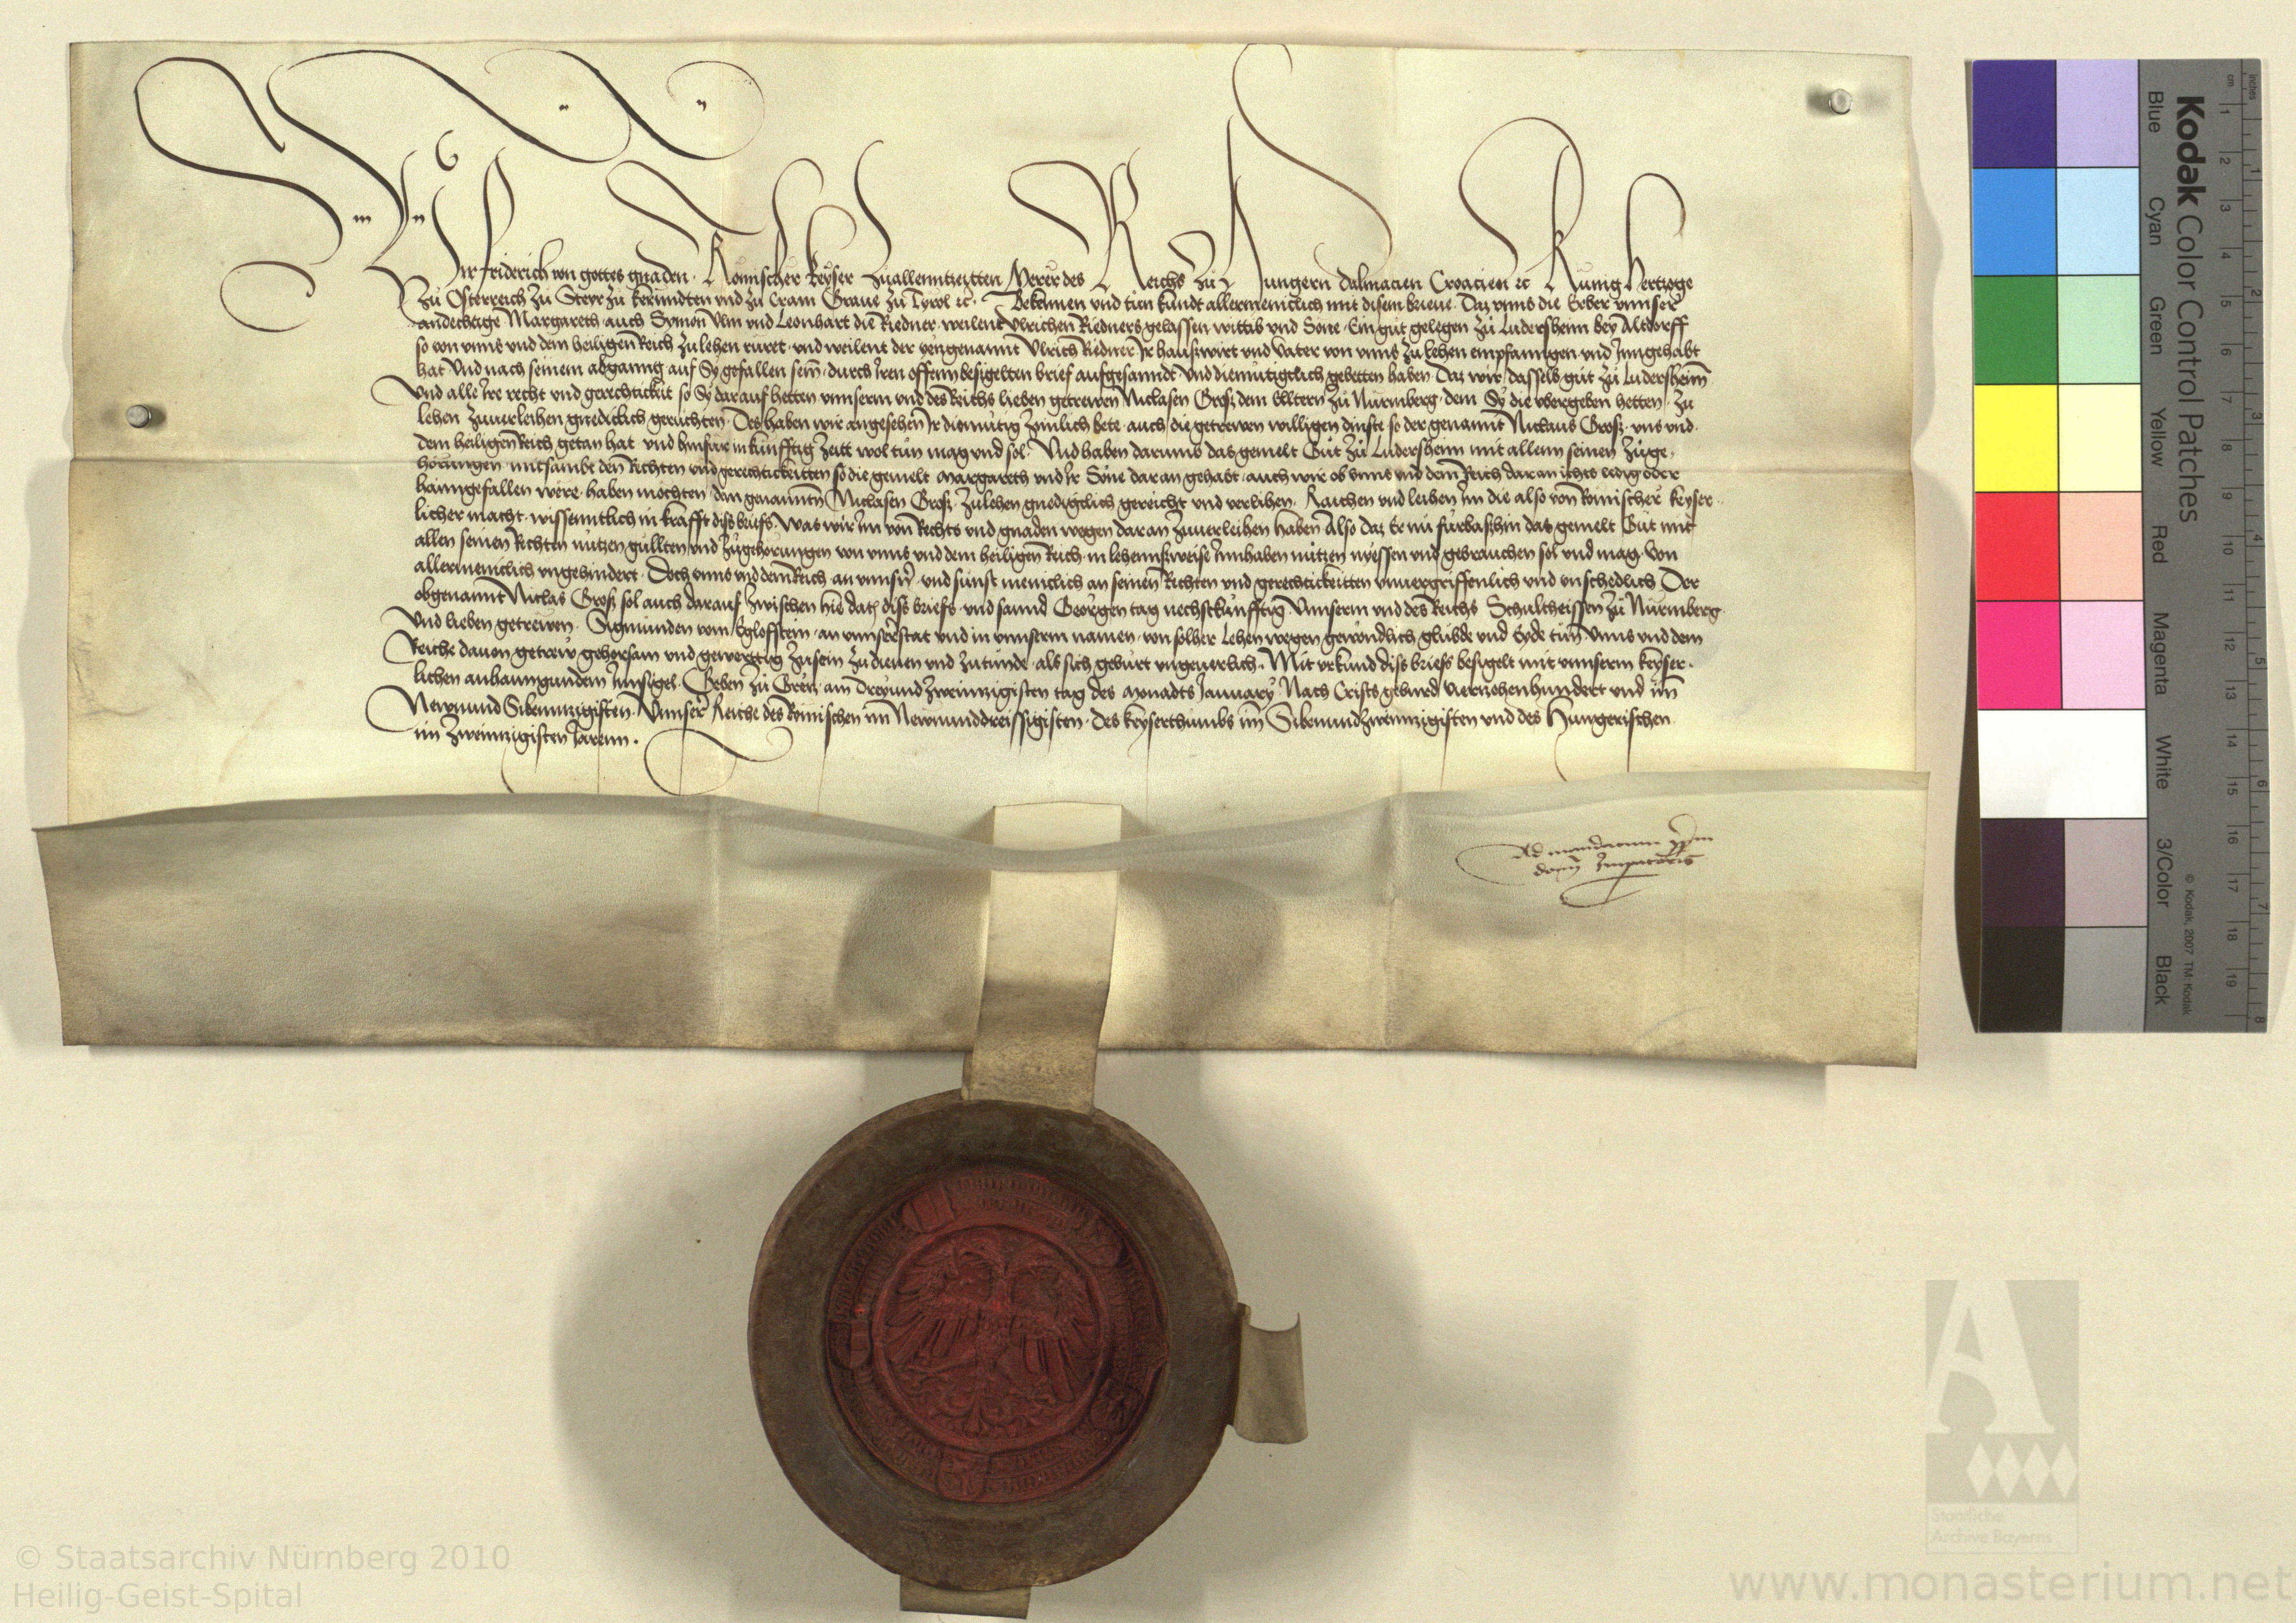 Wir Friderich von gottes gnaden Römischer Keyser zuallenntzeitten Merer des Reichs zu Hungern Dalmacien Croacien ꝛc Kunig Hertzoge
zu Osterreich zu Steyr zu Kernndten vnd zu Crain Graue zu Tyrol ꝛc. Bekennen vnd tun kundt allermeniclich mit disem brieue. Daz vnns die Erber vnnser
andechtige Margareth auch Symon Vlm vnd Leonhart die Riedner weilent Vlrichen Riedners gelassen wittib vnd Sone Ein gut gelegen zu Ludersheim bey Altdorff
so von vnns vnd dem heiligen Reich zulehen ruret vnd weilent der yetzgenannt Vlrich Riedner Ir hauswirt vnd vater von vnns zu lehen empfanngen vnd Inngehabt
hat vnd nach seinem abgannng auf Sy gefallen sein durch Iren offenn besigelten brief aufgesanndt vnd diemutigclich gebetten haben Daz wir dasselb gut zu Ludersheim
vnd alle Ire recht vnd gerechtickeit so Sy darauf hetten vnnserm vnd des Reichs lieben getrewen Niclasen Gross dem Elltern zu Nüremberg dem Sy die vbergeben hetten zu
lehen zuuerleihen gnediclich geruchten Des haben wir angesehen Ir diemütig zimlich bete auch die getrewen willigen dinste so der genannt Niclaus Gross vns vnd
dem heiligen Reich getan hat vnd hinfur in künfftig zeitt wol tun mag vnd sol Vnd haben darumb das gemelt Gut zu Ludersheim mit allenn seinen zuge-
hörungen mitsambt den Rechten vnd gerechtickeitten so die gemelt Margareth vnd Ir Sone daran gehabt auch wir ob vnns vnd dem Reich daran ichts ledig oder
haimgefallen were haben mochten dem genannten Niclasen Gross zulehen gnedigclich gereicht vnd verlihen Raichen vnd leihen Im die also von Römischer keyser-
licher macht wissenntlich in krafft diss briefs Was wir Im von Rechts vnd gnaden wegen daran zuuerleihen haben Also daz Er nu fürbasshin das gemelt Gut mit
allen seinen Rechten nutzen gullten vnd zugehörungen von vnns vnd dem heiligen Reich in lehennsweise Innhaben nutzen nyessen vnd gebrauchen sol vnd mag von
allermeniclich vngehindert Doch vnns vnd dem Reich an vnnsern vnd sunst meniclich an seinen Rechten vnd gerechtickeitten vnuergriffenlich vnd vnschedlich Der
obgenannt Niclas Gross sol auch darauf zwischen hie dato diss briefs vnd sannd Georgen tag nechstkünfftig Vnnserm vnd des Reichs Schultheissen zu Nüremberg
vnd lieben getrewen Sigmunden vom Egloffstein an vnnserstat vnd in vnnserm namen von solher Lehen wegen gewondlich glubde vnd Eyde tun Vnns vnd dem
Reiche dauon getrew gehorsam vnd gewerttig zusein zu dienen vnd zutunde als sich geburt vngeuerlich Mit vrkund diss briefs besigelt mit vnnserm keyser-
lichen anhanngundem Innsigel Geben zu Gretz am Dreyundzweinnzigisten tag des Monadts January Nach Crists geburd vierzehenhundert vnd im
Newnundsibennzigisten Vnnserr Reiche des Römischen im Newnunddreissigisten des keyserthumbs im Sibenundzweinnzigisten vnd des Hungerischen
im zweinnzigisten Jarenn.
Ad mandatum pprium
domi Imperatoris
Kodak Color Control Patches
Blue Cyan Green Yellow Red Magenta White 3/Color Black
© Kodak, 2007 TM: Kodak
inches 1 2 3 4 5 6 7 8
cm 1 2 3 4 5 6 7 8 9 10 11 12 13 14 15 16 17 18 19
Staatliche
Archive Bayerns
© Staatsarchiv Nürnberg 2010
Heilig-Geist-Spital
www.monasterium.net